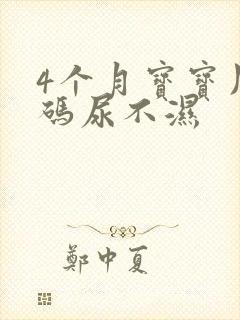 4个月宝寶
碼尿不濕
鄭中夏